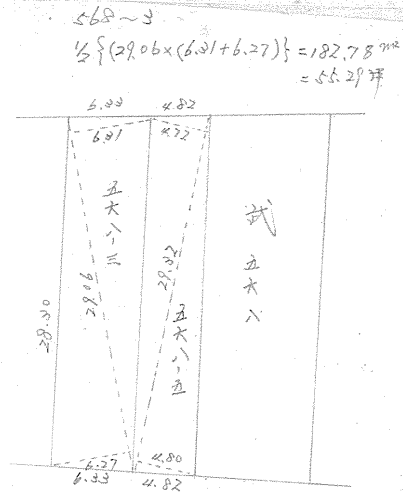 568~3
1/2{(29.06×(6.31+6.27)}=182.78m²
=55.29坪
6.33
4.82
6.31
4.72
五六八-三
弐五六八
29.06
29.32
五六八-五
28.30
6.27
4.80
6.33
4.82